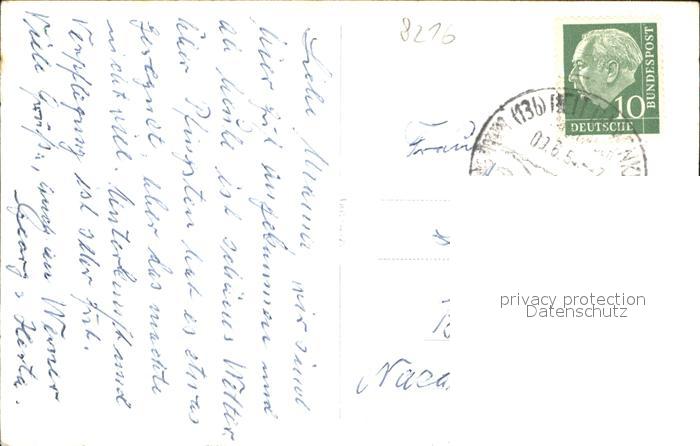 Liebe Mama, wir sind
hier gut angekommen und
ab heute ist schönes Wetter.
Über Pfingsten hat es etwas
geregnet, aber das machte
nicht viel. Unterkunft und
Verpflegung ist sehr gut.
Viele Grüße, auch an Werner
Georg u. Herta.
8216
Frau
DEUTSCHE
BUNDESPOST
10
(13b)
privacy protection
Datenschutz